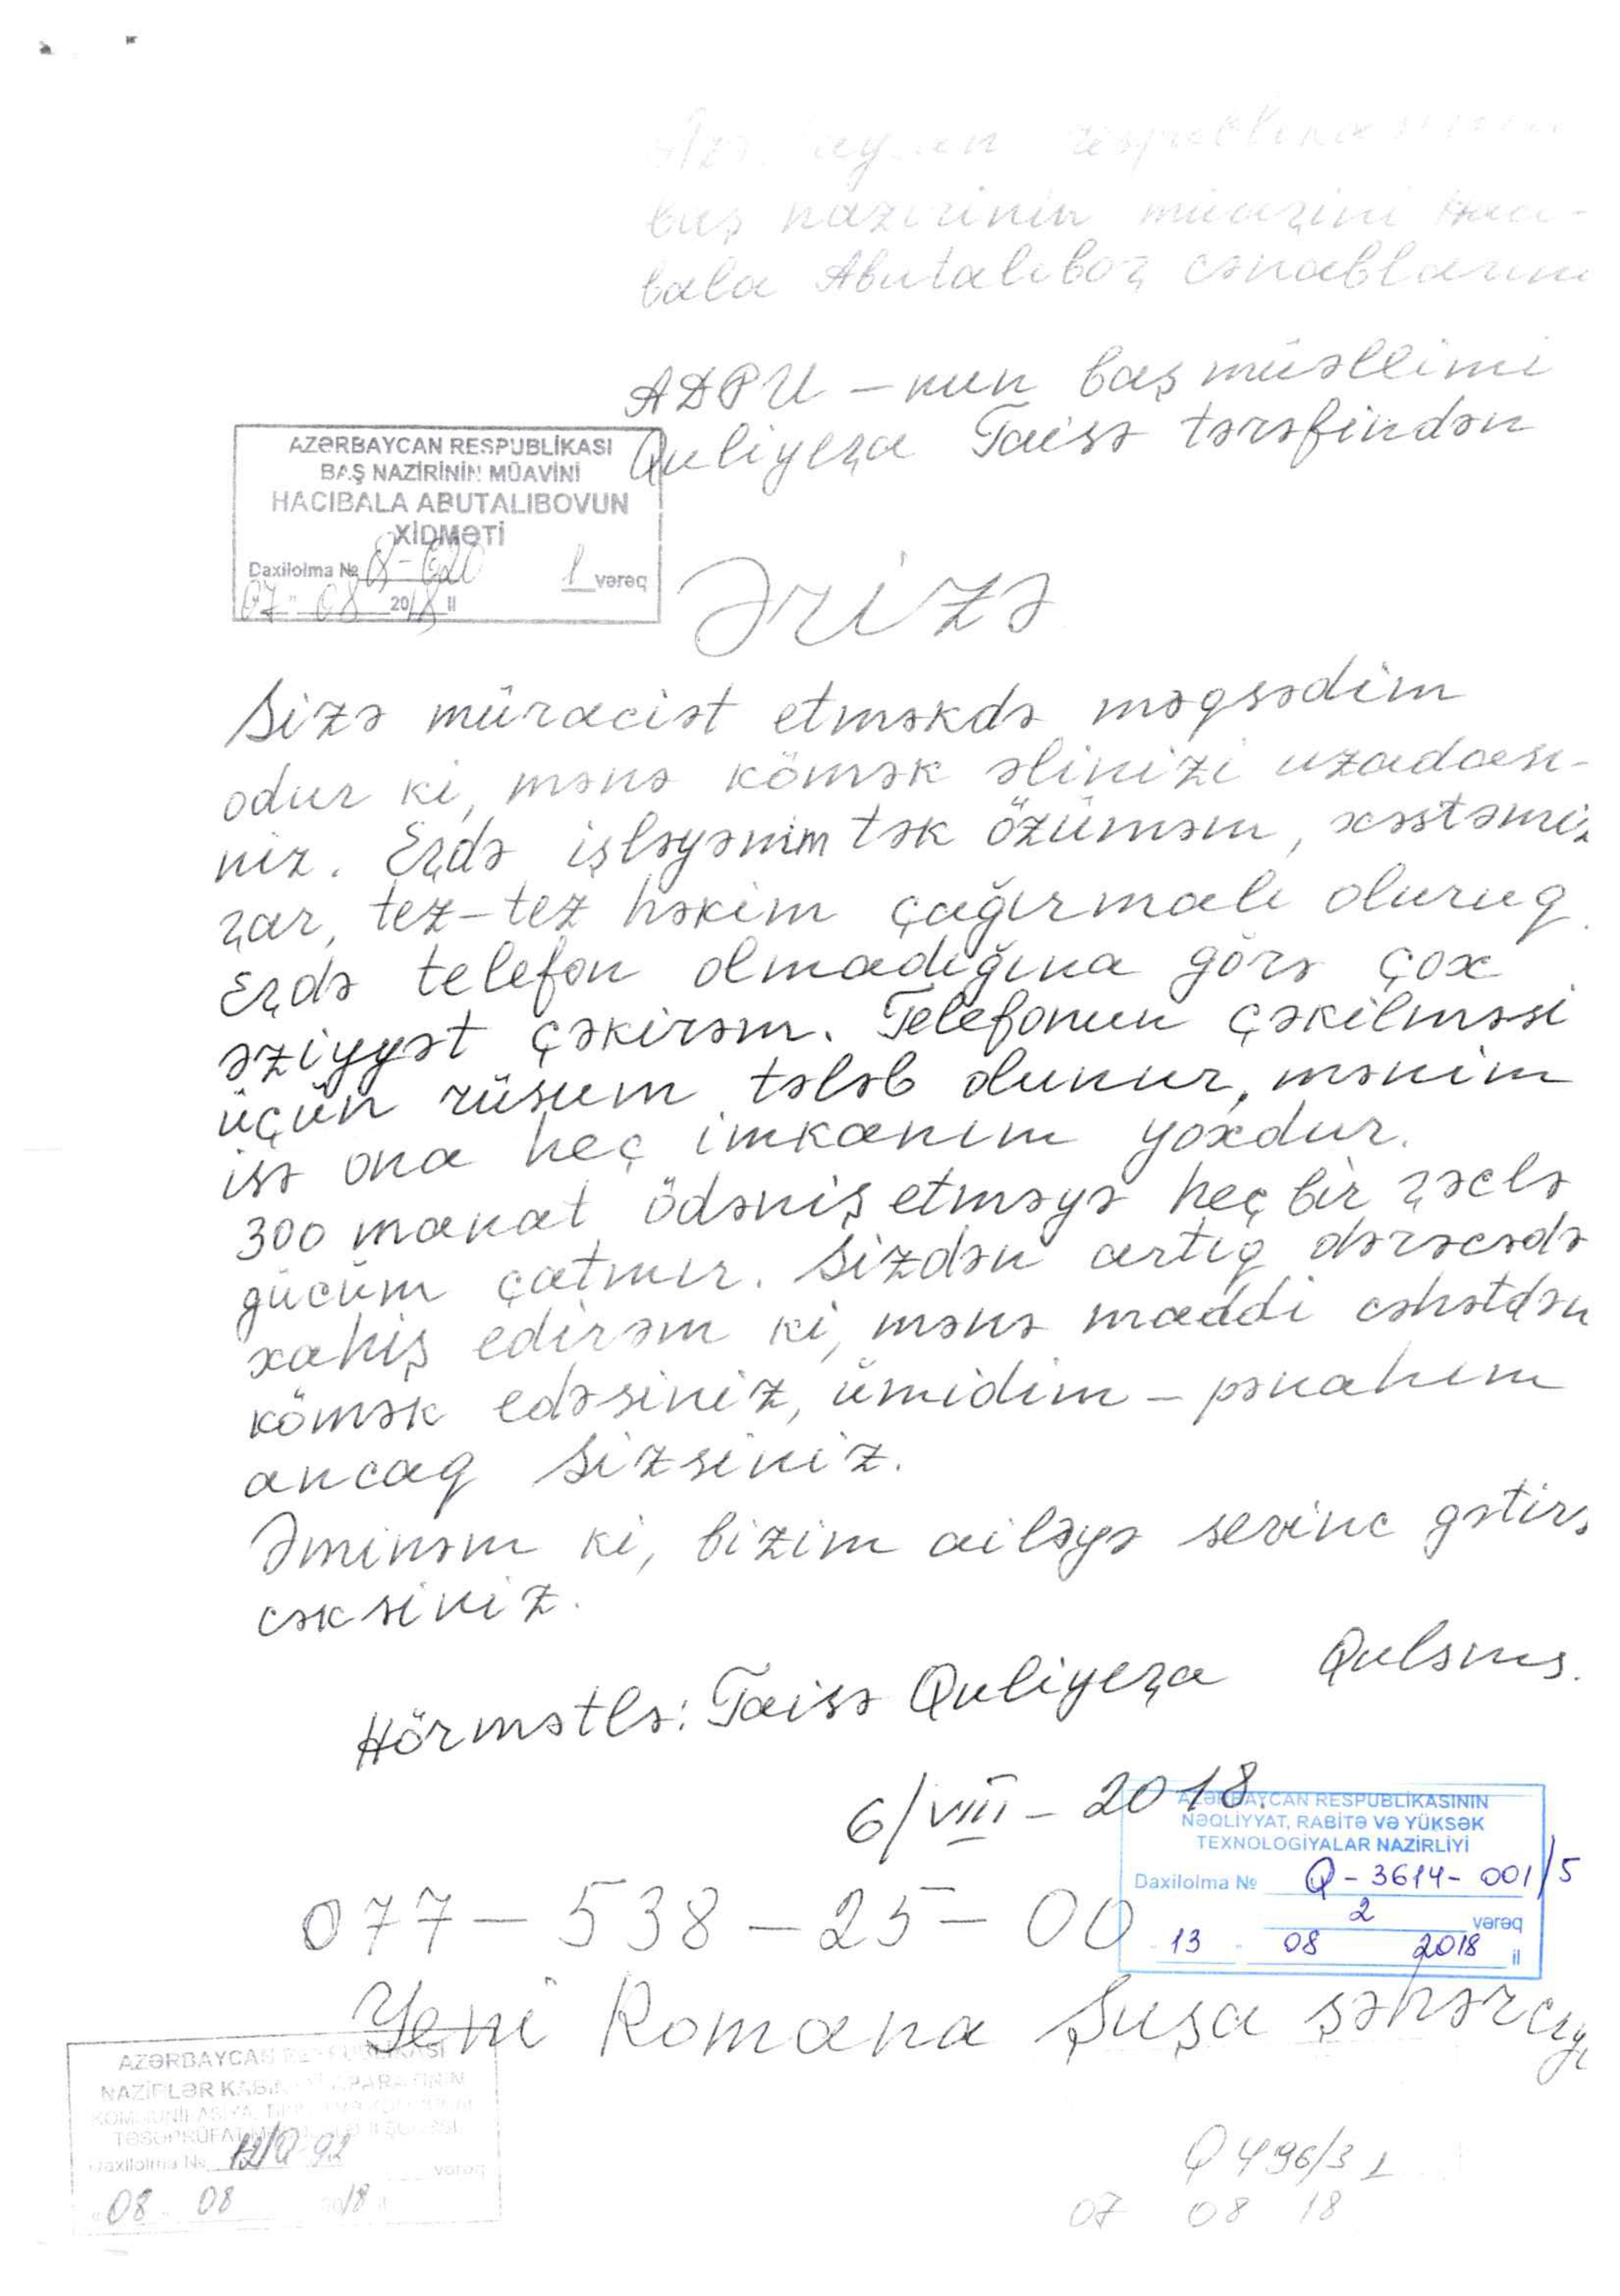 respublikasının
baş nazirinin müavini Hacı-
bala Abutalıbov cənablarına
ADPU-nun baş müəllimi
Quliyeva Taisə tərəfindən
AZƏRBAYCAN RESPUBLİKASI
BAŞ NAZİRİNİN MÜAVİNİ
HACIBALA ABUTALIBOVUN
XİDMƏTİ
Daxilolma № 8-620 1 vərəq
07 " 08 2018 il
Ərizə
Sizə müraciət etməkdə məqsədim
odur ki, mənə kömək əlinizi uzadası-
nız. Evdə işləyənim tək özüməm, xəstəmiz
var, tez-tez həkim çağırmalı oluruq.
Evdə telefon olmadığına görə çox
əziyyət çəkirəm. Telefonun çəkilməsi
üçün rüsum tələb olunur, mənim
isə ona heç imkanım yoxdur.
300 manat ödəniş etməyə heç bir vəclə
gücüm çatmır. Sizdən artıq dərəcədə
xahiş edirəm ki, mənə maddi cəhətdən
kömək edəsiniz, ümidim - pənahım
ancaq Sizsiniz.
Əminəm ki, bizim ailəyə sevinc gətirə
cəksiniz.
Hörmətlə: Taisə Quliyeva
6/VIII - 2018.
AZƏRBAYCAN RESPUBLİKASININ
NƏQLİYYAT, RABİTƏ VƏ YÜKSƏK
TEXNOLOGİYALAR NAZİRLİYİ
Daxilolma № Q-3614-001/5
2 vərəq
13 - 08 2018 il
077 - 538 - 25 - 00
Yeni Romana Şuşa şəhərcıyi
AZƏRBAYCAN RESPUBLİKASI
NAZİRLƏR
Daxilolma № 12/Q-92 vərəq
" 08 " 08 2018 il
Q 496/3 1
07 08 18